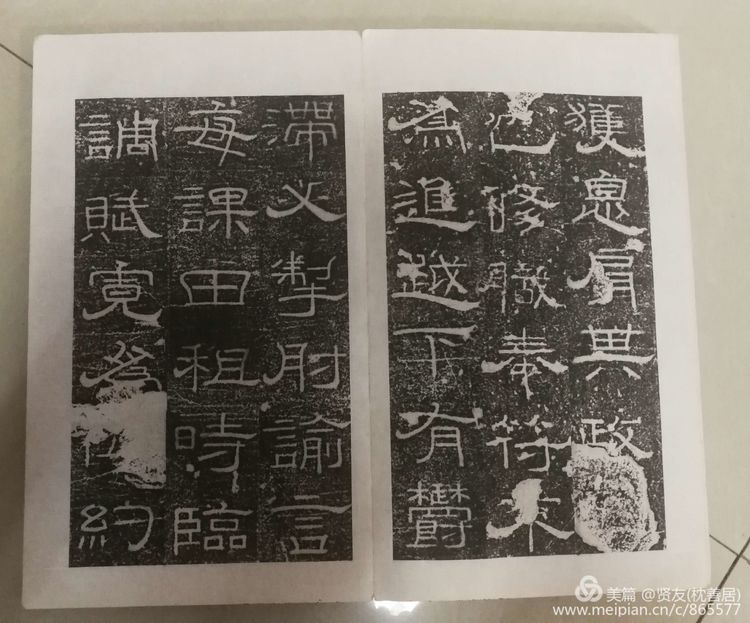 獲息肩其政
也修職奉符来
為進越下有鬱
滯必掣肘諭言
每課田租時臨
調賦寛
約
美篇 @贤友(枕善居)
www.meipian.cn/c/865577